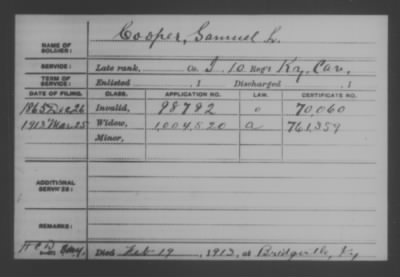 NAME OF SOLDIER: Cooper, Samuel L.
SERVICE: Late rank, Co. I, 10 Reg't Ky. Cav.
TERM OF SERVICE: Enlisted , 1 Discharged , 1
DATE OF FILING. CLASS. APPLICATION NO. LAW. CERTIFICATE NO.
1865 Dec 26 Invalid, 98792 o 70,060
1913 Mar 25 Widow, 1,004,520 a 761,359
Minor,
ADDITIONAL SERVICES:
REMARKS:
Died Feb 19, 1913, at Ky